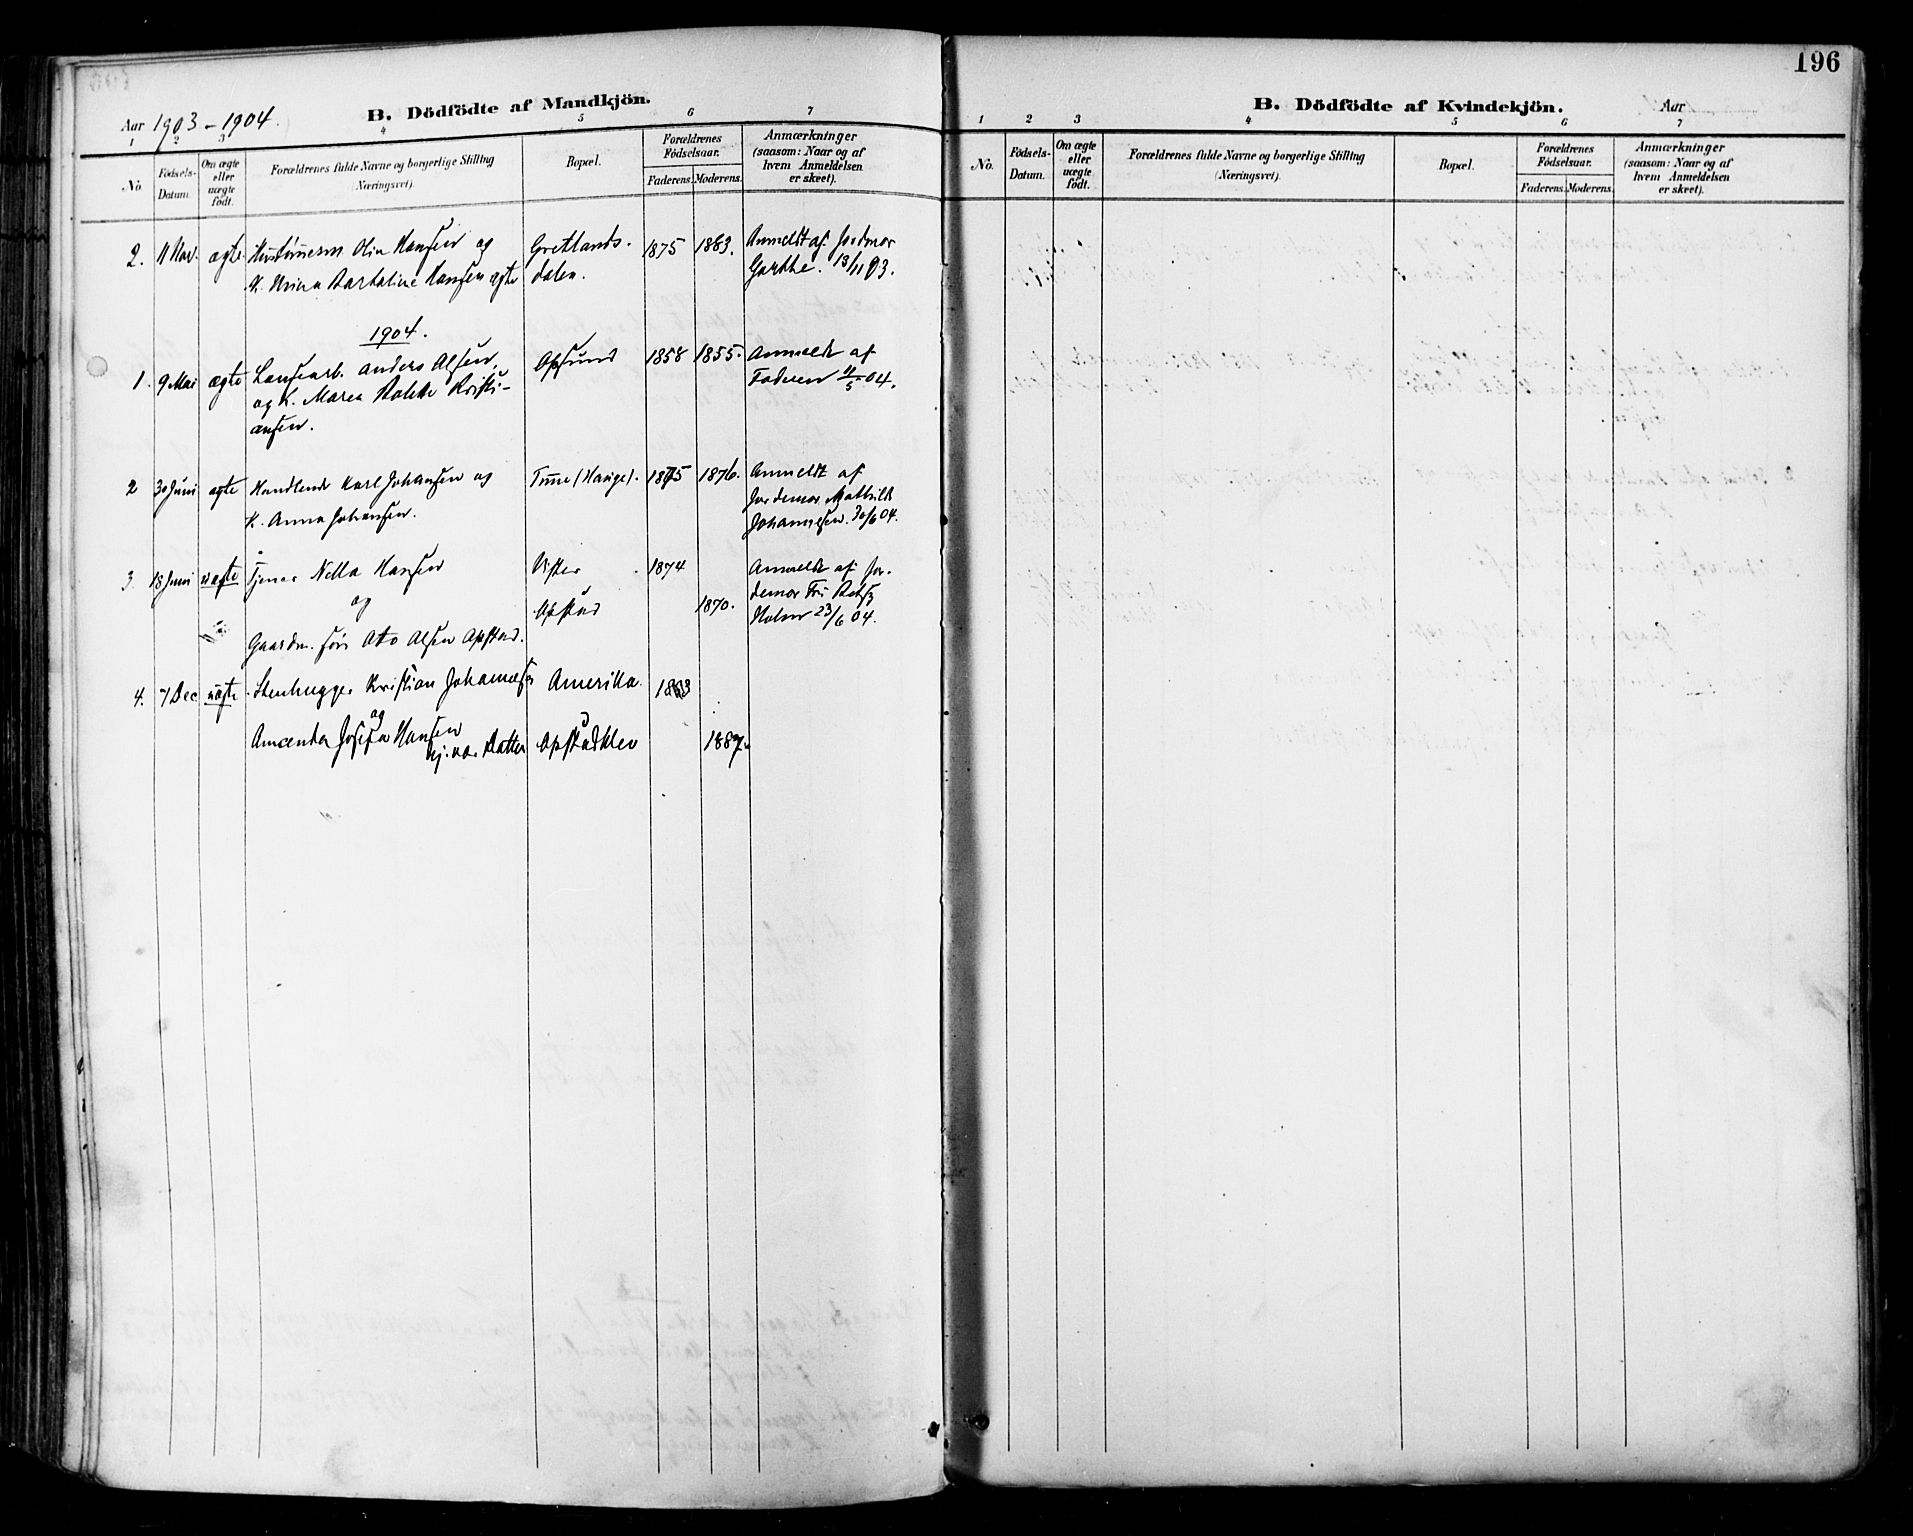 Aar 1903 - 1904.
B. Dödfödte af Mandkjön.
1 2 3 4 5 6 7
No.
Födsels-Datum.
Om ægte eller uægte født.
Forældrenes fulde Navne og borgerlige Stilling
(Næringsvei).
Bopæl.
Forældrenes Fødselsaar.
Faderens. Moderens.
Anmærkninger
(saasom: Naar og af
hvem Anmeldelsen
er skeet).
2. 11 Nov. ægte Olin Hansen og Gretlands- 1875 1883. Anmeldt af Jordmor
K. Bartoline Hansen ægte dalen. 13/11 03.
1904.
1. 9 Mai ægte Anders Olsen, Opsund 1858 1855. Anmeldt af
og K. Maren Kristi- Faderen 11/5 04.
ansen.
2 30 Juni ægte Handlende Karl Johansen og Tune (Hauge). 1875 1876. Anmeldt af
K. Anna Johansen. Jordemor Mathilde
Johannesen. 30/6 04.
3 18 Juni uægte Tjener Hansen Vister 1874 Anmeldt af Jor-
og Opstad 1870. demor
Holm 23/6 04.
Gaardm. søn Olsen Opstad.
4. 7 Dec uægte Stenhugger Kristian Johannesen Amerika. 1883
og
Josefa Hansen Opstadklev 1887.
Datter
196
B. Dödfödte af Kvindekjön.
Aar
1 2 3 4 5 6 7
No.
Födsels-Datum.
Om ægte eller uægte født.
Forældrenes fulde Navne og borgerlige Stilling
(Næringsvei).
Bopæl.
Forældrenes Fødselsaar.
Faderens. Moderens.
Anmærkninger
(saasom: Naar og af
hvem Anmeldelsen
er skeet).